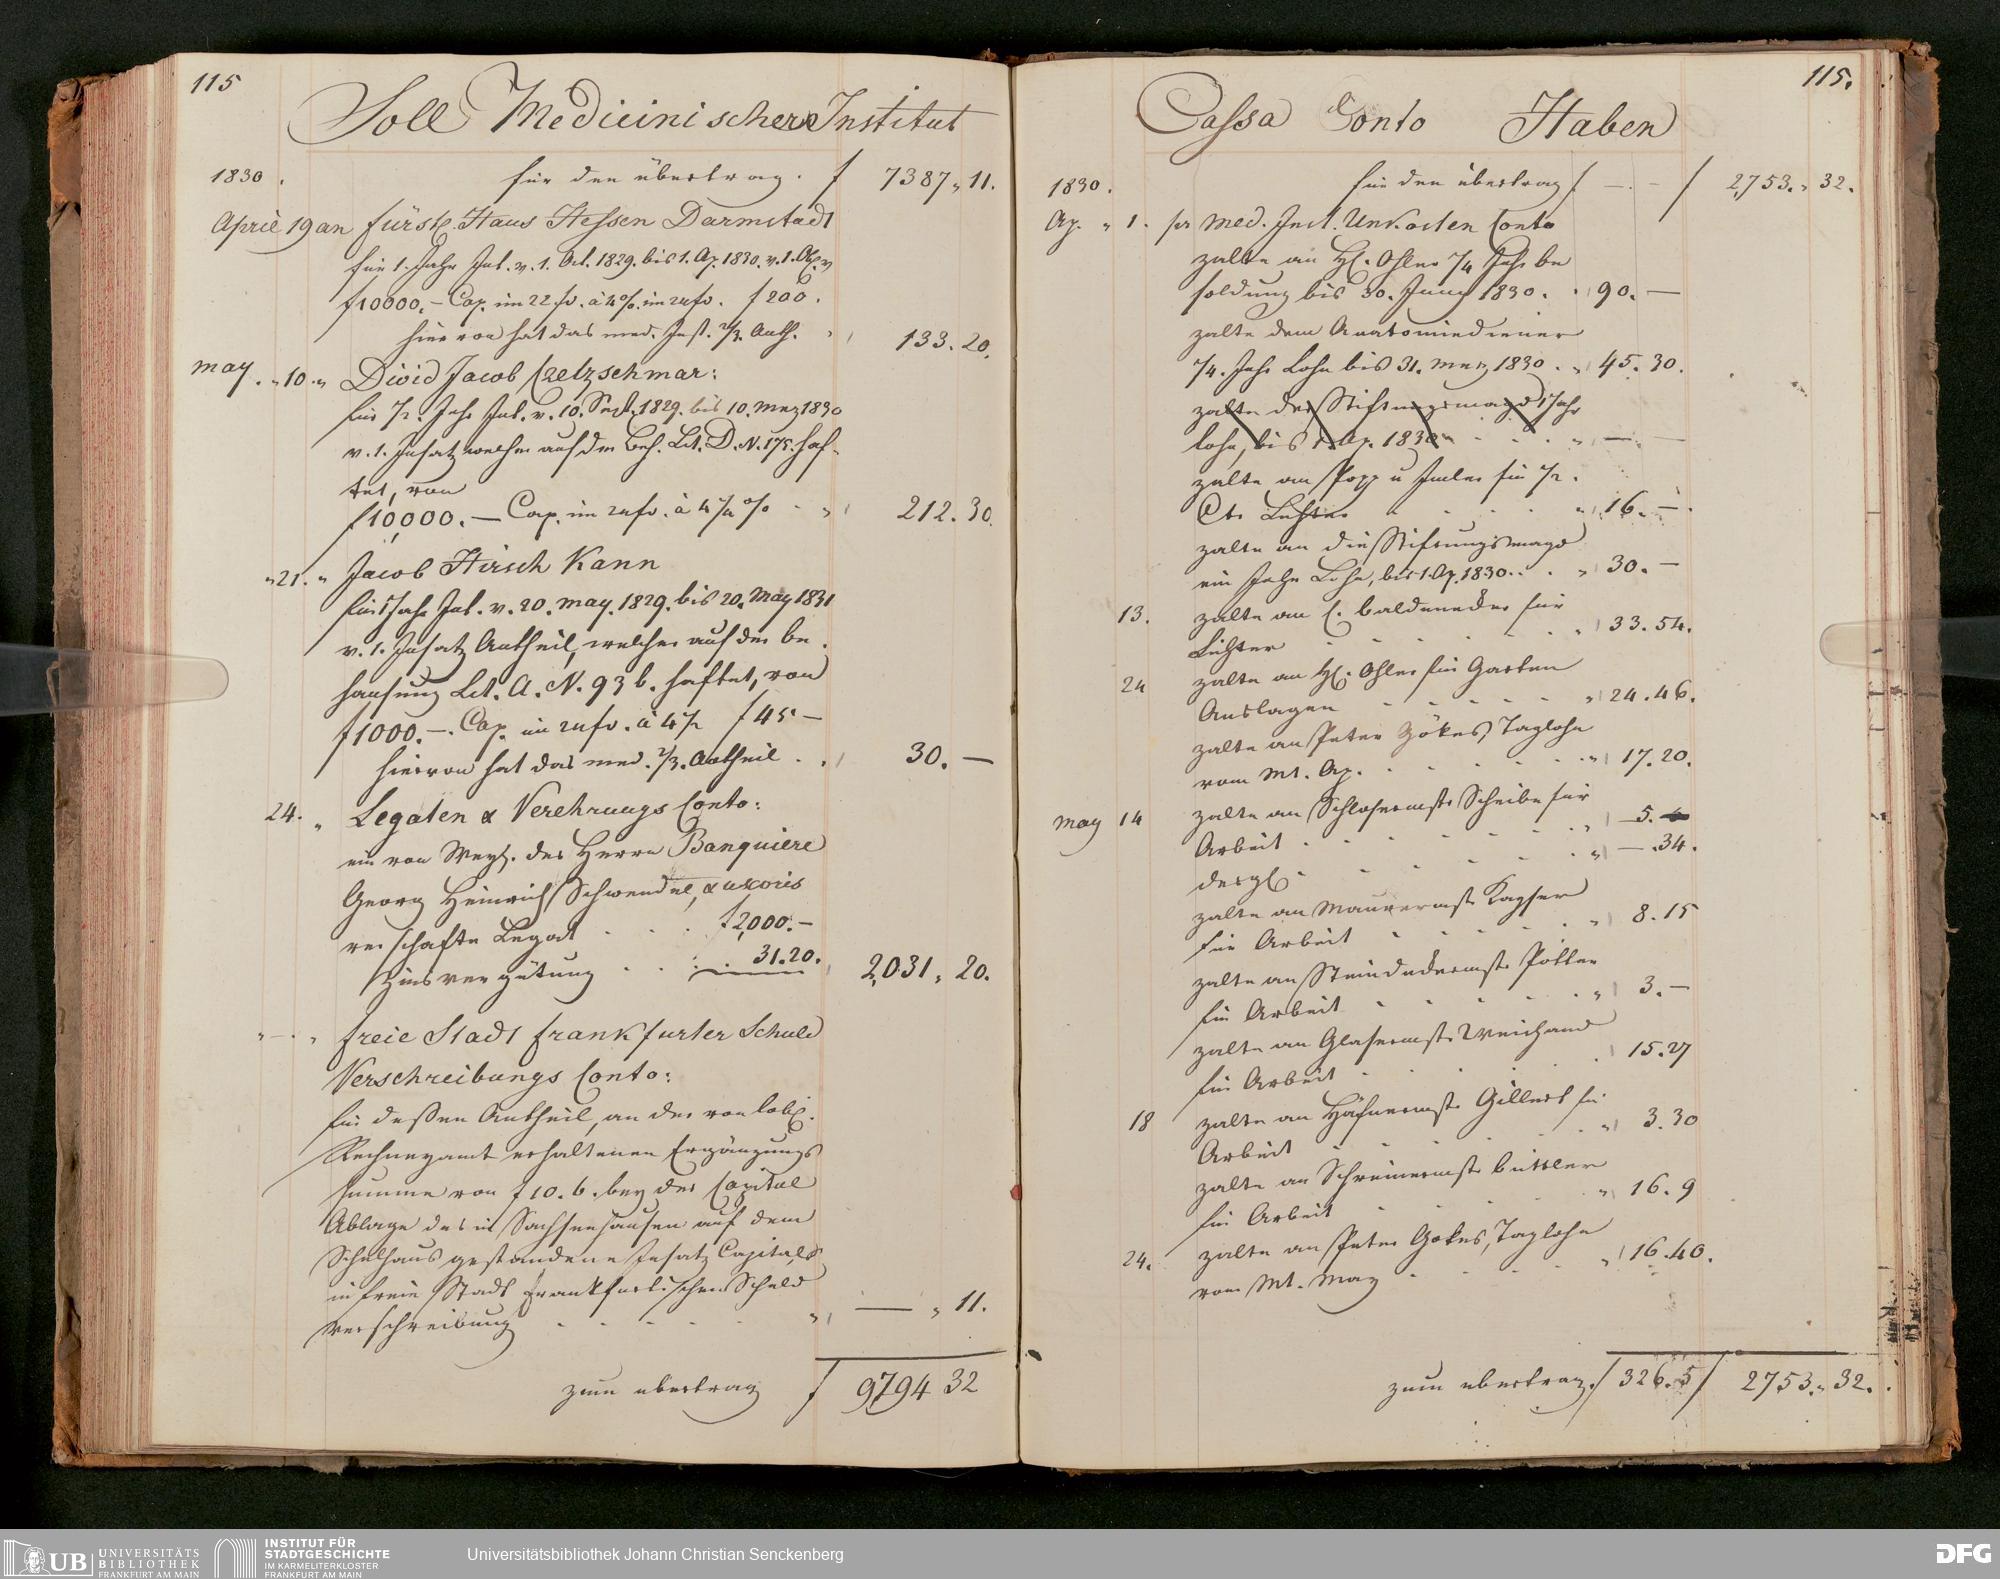 115
Soll Medicinisches Institut
1830. für den übertrag. f 7387 „ 11.
April 19 an fürstl. Haus Hessen Darmstadt
für 1. Jahr Int. v. 1. Oct. 1829. bis 1. Ap. 1830. v. 1. Obl. v
f 10000.— Cap. im 22 fs. à 4 %. im 24 fs. f 200.
hiervon hat das med. Inst. 2/3. Anth. 133. 20.
may. „ 10. „ David Jacob Cretzschmar:
für 1/2. Jahr Int. v. 10. Sept. 1829. bis 10. Merz 1830
v. 1. Insatz welcher auf der Beh. Lit. D. N. 175. haf-
tet, von
f 10,000.— Cap. im 24 fs. à 4 1/4 % 212. 30.
„ 21. „ Jacob Hirsch Kann
für 1 Jahr Int. v. 20. may. 1829. bis 20. May 1831
v. 1. Insatz Antheil, welcher auf der be-
hausung Lit. A. N. 93 b. haftet, von
f 1000.—. Cap. im 24 fs. à 4 1/2 f 45 —
hiervon hat das med. 2/3. Antheil 30. —
24. „ Legaten & Verehrungs Conto:
ein von Weyl. des Herrn Banquiere
Georg Heinrich Schwendel, & uxoris
verschafte Legat f 2,000.—
Zinsvergütung 31. 20. 2,031 „ 20.
„ — „ freie Stadt frankfurter Schuld
Verschreibungs Conto:
für deßen Antheil, an der von löbl.
Rechneyamt erhaltenen Ergänzungs
summe von f 10. 6. bey der Capital
Ablage des in Sachsenhausen auf dem
Schulhaus gestandene Insatz Capitals,
in freie Stadt Frankfurtischen Schuld
verschreibung — „ 11.
zum übertrag f 9794 32
115.
Cassa Conto Haben
1830. für den übertrag f — . — f 2,753. „ 32.
Ap. „ 1. pr Med. Inst. Unkosten Conto
zalte an H. Ohler 1/4 Jahr be
soldung bis 30. Juny 1830. 90. —
zalte dem Anatomiediener
1/4. Jahr Lohn bis 31. Merz 1830. 45. 30.
zalte der Stiftungsmagd 1 Jahr
lohn, bis 1. Ap. 1830 — . —
zalte an Popp u für 1/2.
Ctr Lichter 16. —
zalte an die Stiftungsmagd
ein Jahr Lohn, bis 1. Ap. 1830. 30. —
13. zalte an C. Baldenecker für
Lichter 33. 54.
24 zalte an H. Ohler für Garten
Auslagen 24. 46.
zalte an Peter Gökes, Taglohn
vom Mt. Ap. 17. 20.
may 14 zalte an Schloßermstr Scheibe für
Arbeit 5.
desgl — . 34.
zalte an Maurermstr Kayser
für Arbeit 8. 15
zalte an Steindeckermstr
für Arbeit 3. —
zalte an Glasermstr Weichand
für Arbeit 15. 27
18 zalte an Häfnermstr Gillert für
Arbeit 3. 30
zalte an Schreinermstr Büttler
für Arbeit 16. 9
24. zalte an Peter Gökes, Taglohn
vom Mt. May 16. 40.
zum übertrag. f 326. 5 f 2753. „ 32.
UB UNIVERSITÄTS
BIBLIOTHEK
FRANKFURT AM MAIN
INSTITUT FÜR
STADTGESCHICHTE
IM KARMELITERKLOSTER
FRANKFURT AM MAIN
Universitätsbibliothek Johann Christian Senckenberg
DFG